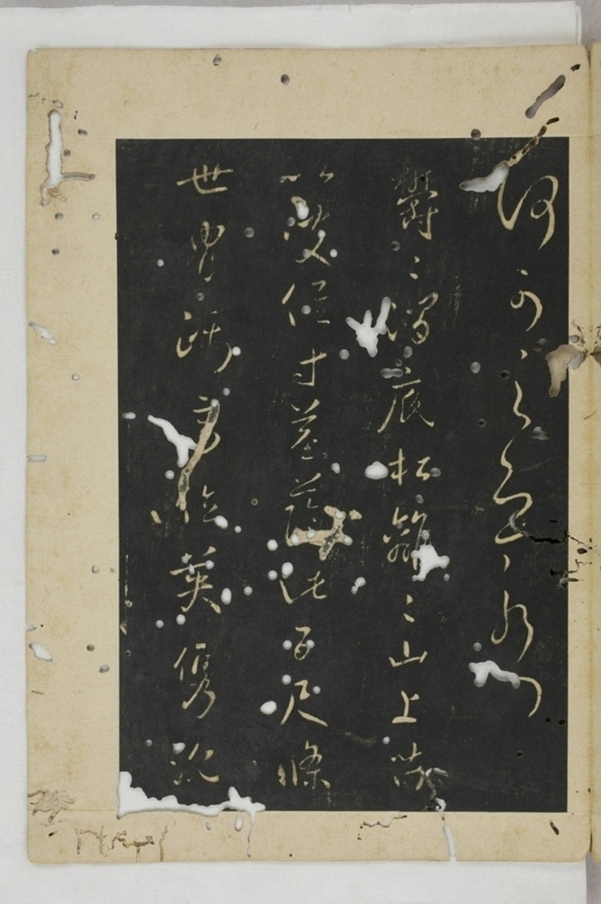 何可
鬱〻澗底松離〻山上苗
以彼徑寸莖蔭此百尺條
世冑躡高位英儁沈